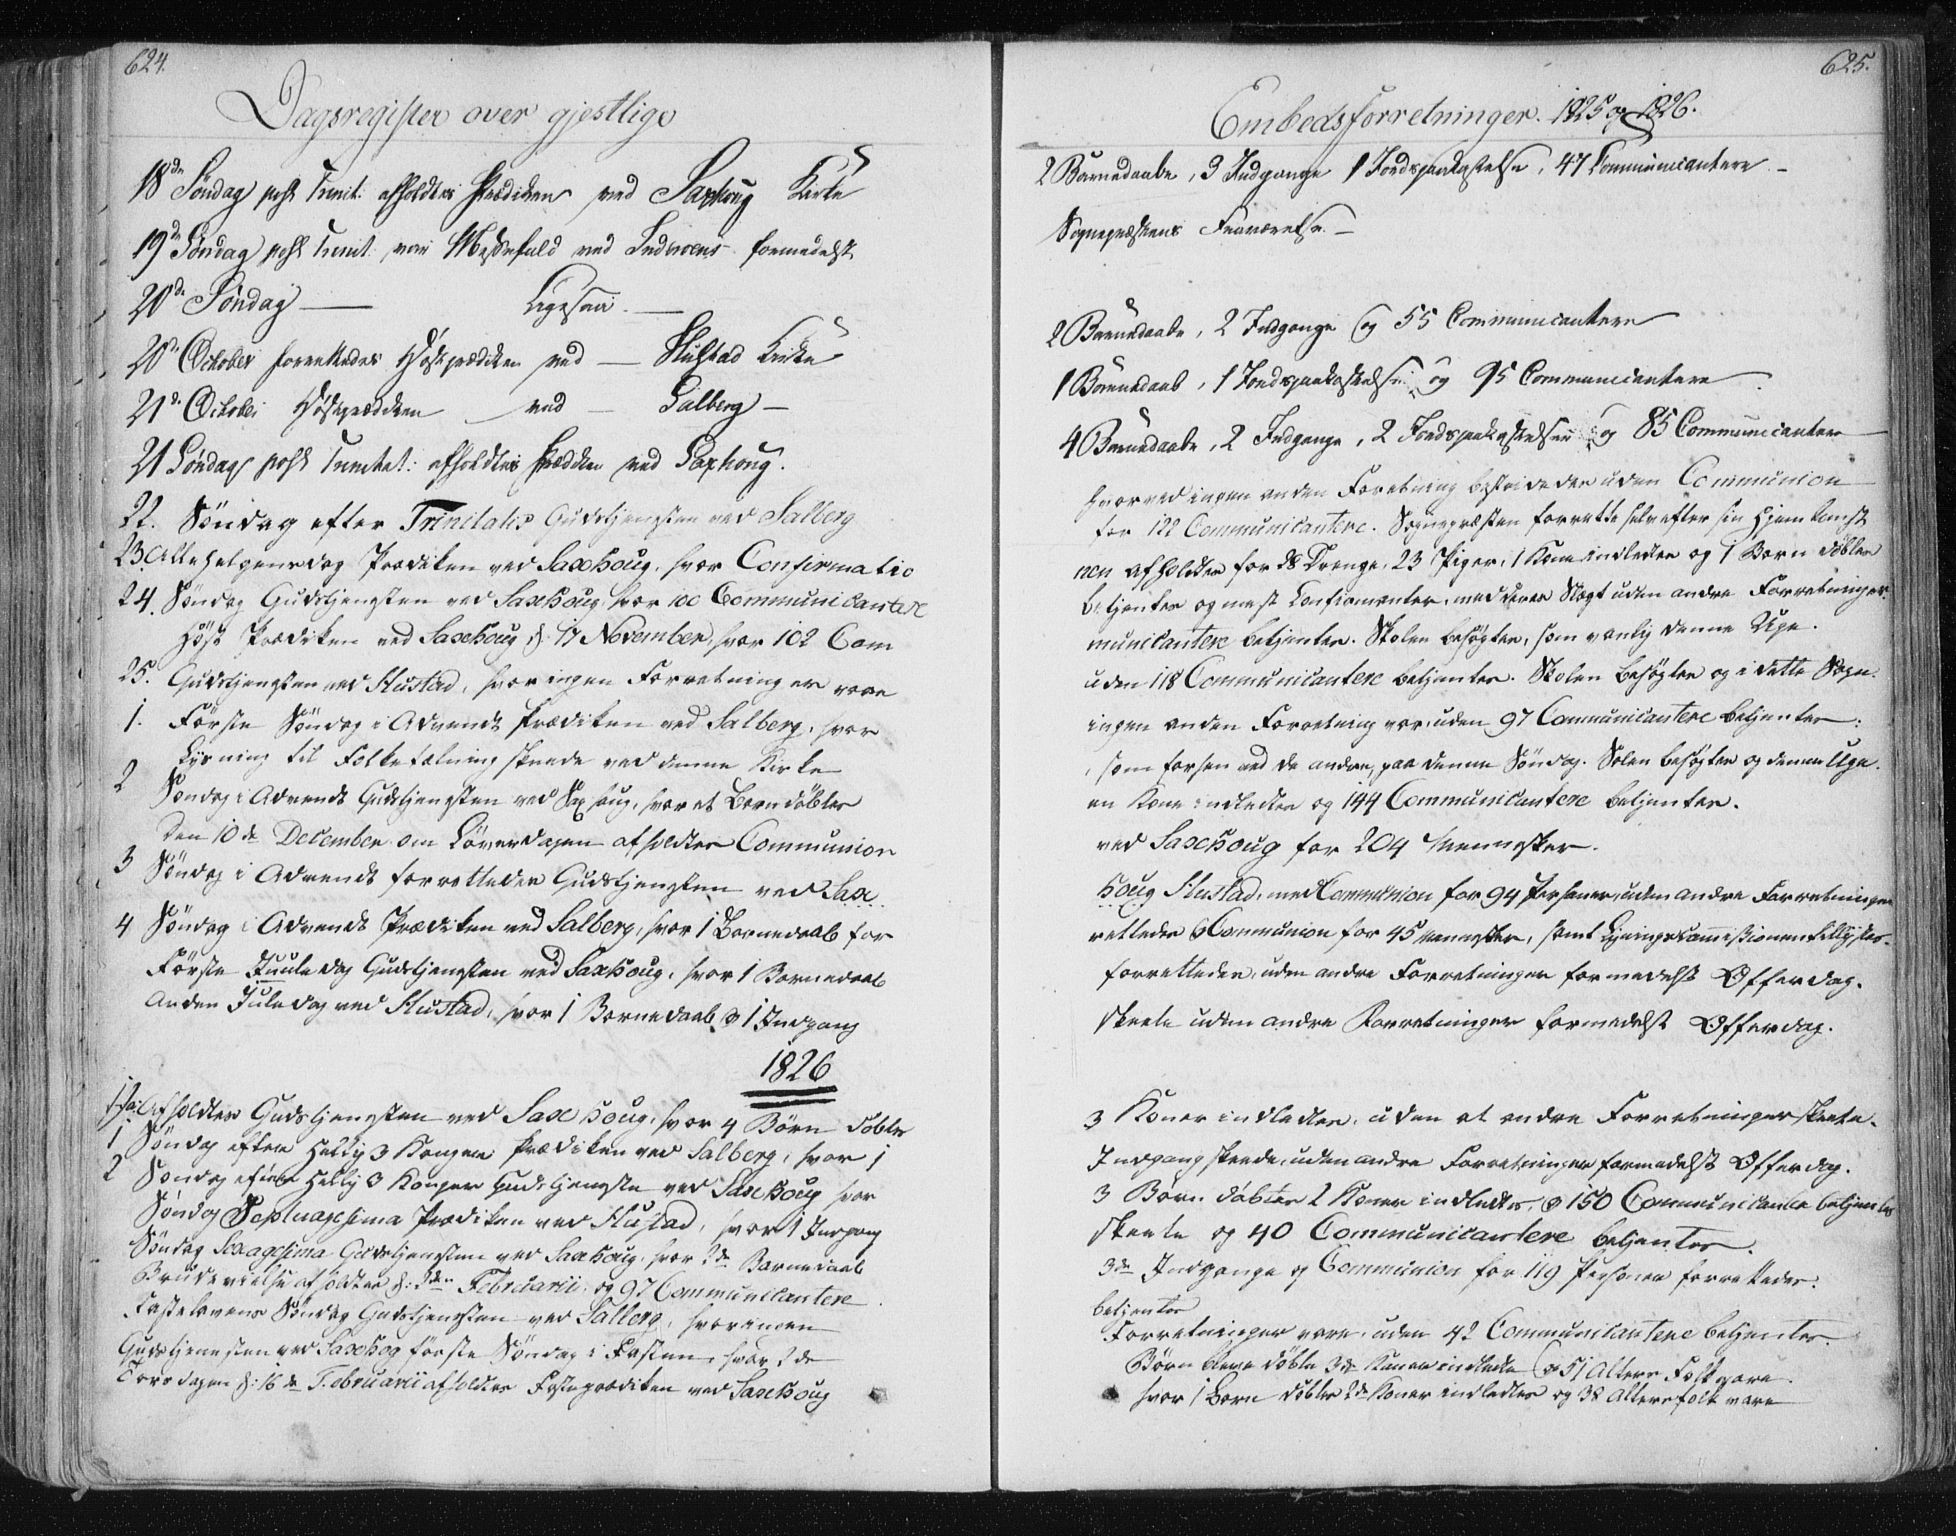 624.
Dagsregister over gjestlige
18de Søndag post Trinit: afholdtes Prædiken ved Saxhoug Kirke
19de Søndag post Trinit: var Messefald ved Inderøens formedelst
20de Søndag — Ligesaa. —
20de October forrettedes Høstprædiken ved — Hustad Kirke
21de October Høstprædiken ved — Salberg —
21 Søndag post Trinitat: afholdtes Prædiken ved Saxhoug.
22. Söndag efter Trinitatis Gudstjenesten ved Salberg
23. Allehelgensdag Prædiken ved Saxehoug, hvor Confirmatio
24. Söndag Gudstjenesten ved Saxehoug, hvor 100 Communicantere
Höst Prædiken ved Saxehoug d: 17 November, hvor 102 Com
25. Gudstjenesten ved Hustad, hvor ingen Forretninger vare
1. Förste Söndag i Advendt Prædiken ved Salberg, hvor
Lysning til Folketælning skeede ved denne Kirke
2 Söndag i Advendt Gudstjenesten ved Saxhoug, hvor et Barn döbtes
Den 10de December om Löverdagen afholdtes Communion
3 Söndag i Advendt forrettedes Gudstjenesten ved Saxe
4 Söndag i Advendt Prædiken ved Salberg, hvor 1 Barnedaab for
Förste Juuledag Gudstjenesten ved Saxhoug, hvor 1 Barnedaab
Anden Juledag ved Hustad, hvor 1 Barnedaab & 1 Indgang
1826
afholdtes Gudstjenesten ved Saxehoug, hvor 4 Börn döbtes
1 Söndag efter Hellig 3 Konger Prædiken ved Salberg, hvor 1
2 Söndag efter Hellig 3 Konger Gudstjeneste ved Saxehoug hvor
Söndag Septuagesima Prædiken ved Hustad, hvor 1 Indgang
Söndag Sexagesima Gudstjenesten ved Saxehoug, hvor 2de Barnedaab
Brudevielse afholdtes d: 3den Februarii, og 97 Communicantere
Fastelavens Söndag Gudstjenesten ved Salberg, hvor ingen
Gudstjenesten ved Saxehog förste Söndag i Fasten, hvor 2de
Torsdagen d: 16de Februarii afholdtes Fasteprædiken ved Saxehoug
625.
Embedsforretninger. 1825 og 1826.
2 Barnedaabe, 3 Indgange 1 Jordspaakastelse, 47 Communicantere. —
Sognepræstens Fraværelse. —
2 Barnedaabe, 2 Indgange og 55 Communicantere
1 Barnedaab, 1 Jordspaakastelse og 95 Communicantere
4 Barnedaabe, 2 Indgange, 2 Jordspaakastelser og 85 Communicantere
hvorved ingen anden Forretning bestridedes uden Communion
for 122 Communicantere. Sognepræsten forrettede selv efter sin Hjemkomst
nen afholdtes for 28 Drenge, 23 Piger, 1 Kone indledtes og 1 Barn döbtes
betjentes og mest Confirmanter, med deres Slægt uden andre Forretninger.
municantere betjentes. Skolen besøgtes, som vanlig denne Uge.
uden 118 Communicantere betjentes. Skolen besøgtes og i dette Sogn.
ingen anden Forretning var, uden 97 Communicantere betjentes:
, som forhen ved de andre, paa denne Söndag. Skolen besøgtes og denne Uge.
en Kone indledtes og 144 Communicantere betjentes.
ved Saxehoug for 204 Mennesker.
houg Hustad, med Communion for 94 Personer, uden andre Forretninger
rettedes & Communion for 45 Mennesker, samt
forrettedes, uden andre Forretninger formedelst Offerdag.
skeete uden andre Forretninger formedelst Offerdag.
3 Koner indledtes, uden at andre Forretninger skeete.
Indgang skeede, uden andre Forretninger formedelst Offerdag.
3 Börn döbtes 2 Koner indledtes, & 150 Communicanter betjentes
skeete og 40 Communicantere betjentes.
3de Indgange og Communion for 119 Personer forrettedes.
betjentes
Forretninger vare, uden 42 Communicantere betjentes
Börn bleve döbte 3de Koner indledte & 51 Alters Folk vare.
hvor 1 Barn döbtes 2de Koner indledtes og 38 Altersfolk vare